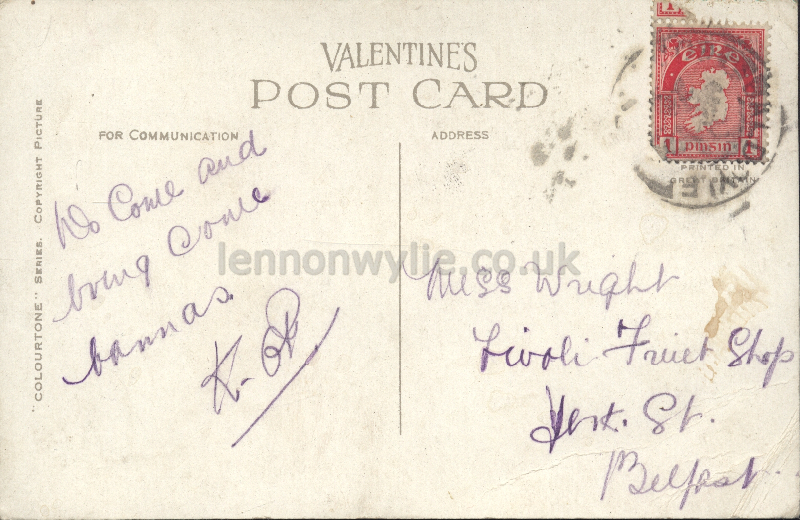 VALENTINE'S
POST CARD
FOR COMMUNICATION
ADDRESS
"COLOURTONE" SERIES. COPYRIGHT PICTURE
éire
1 pinsin 1
PRINTED IN
GREAT BRITAIN
Do Come and
bring Some
bannas.
K.
lennonwylie.co.uk
Miss Wright
Tivoli Fruit Shop
York. St.
Belfast.